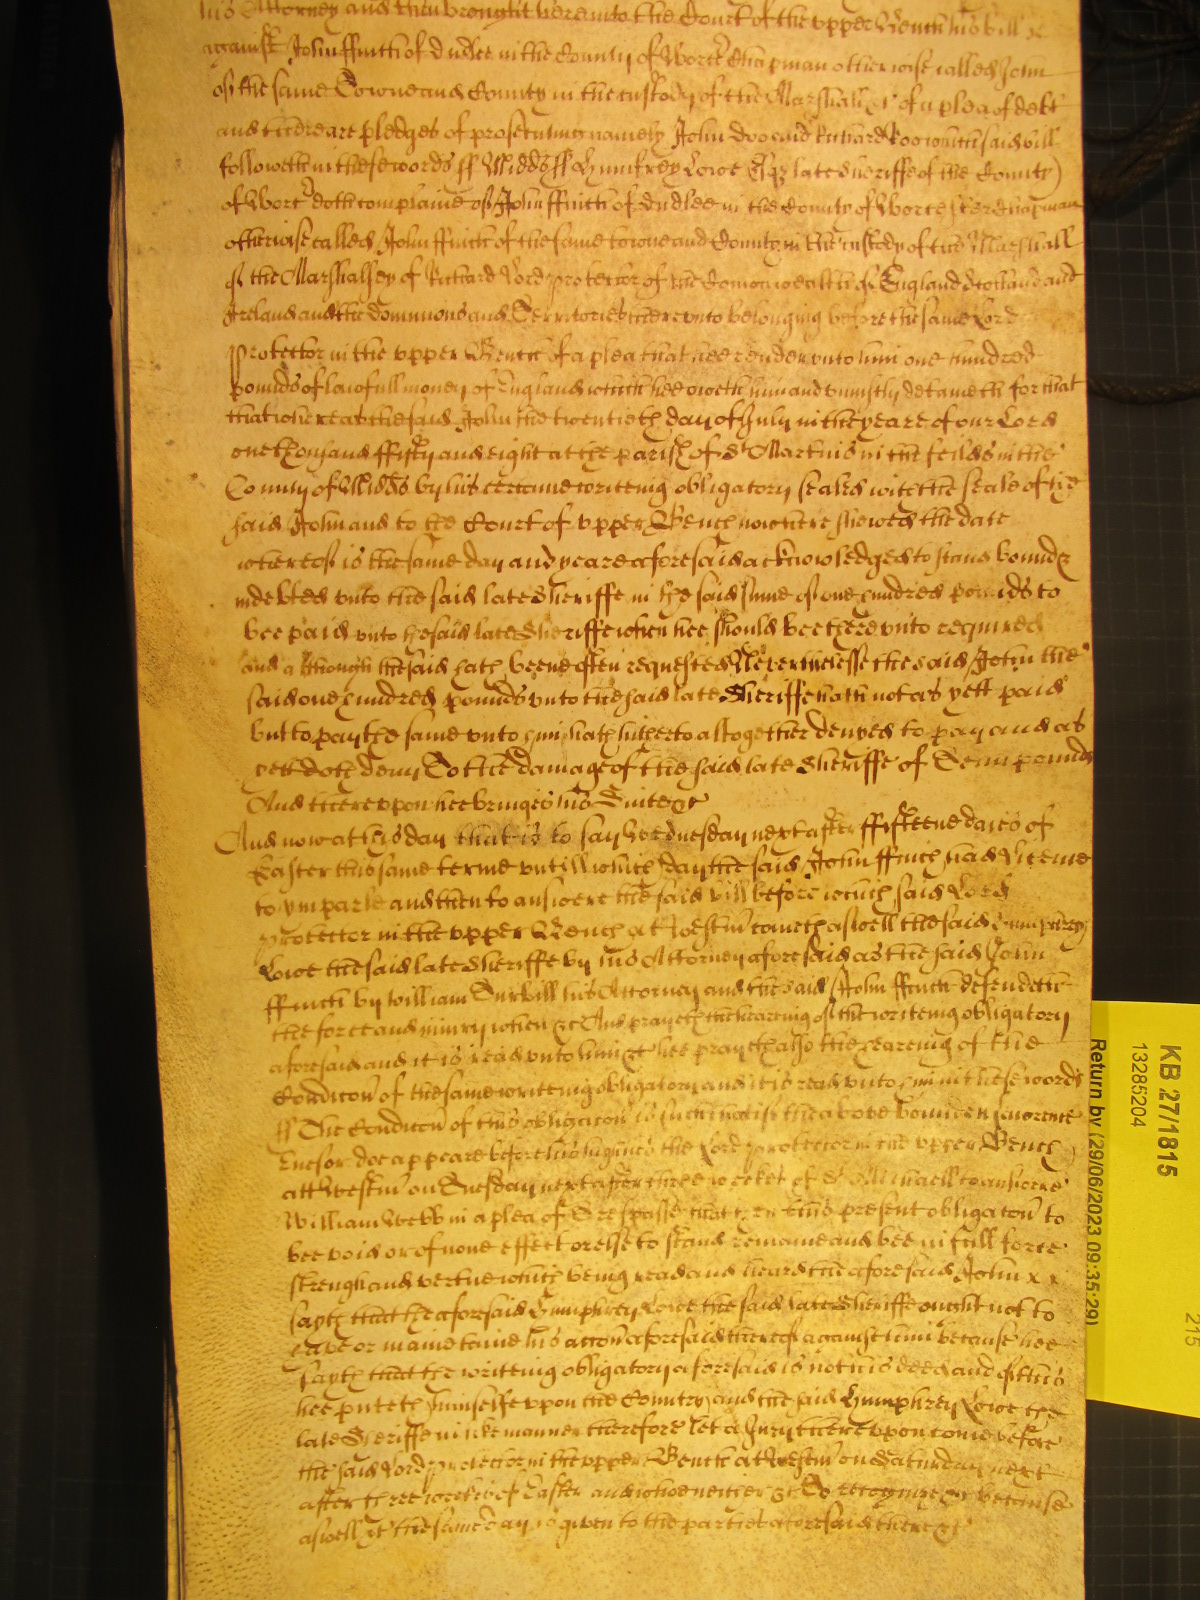 his Attorney and then brought here into the Court of the upper Bench his bill
against John ffinch of Dudley in the County of Worcr Chapman otherwise called John
of the same Towne and County in the custody of the Marshall &c of a plea of debt
and there are pledges of prosecuting namely John Doo and Richard Roo which said bill
followeth in these words ss Midds ss Humfrey Lowe Esqr late Sheriffe of the County
of Worcr doth complaine of John ffinch of Dudley in the County of Worcester Chapman
otherwise called John ffinch of the same towne and County in the custody of the Marshall
of the Marshalsey of Richard Lord protector of the Comonwealth of England Scotland and
Ireland and the dominions and Territories thereunto belonging before the same Lord
Protector in the upper Bench of a plea that hee render unto him one hundred
pounds of lawfull money of England which hee oweth him and uniustly detaineth for that
that whereas the said John the twentieth day of July in the yeare of our Lord
one thousand ffifty and eight at the parish of St Martins in the feilds in the
County of Midds by his certaine writeing obligatory sealed with the seale of the
said John and to the Court of upper Bench now here shewed the date
whereof is the same day and yeare aforesaid acknowledged to stand bound
indebted unto the said late Sheriffe in the said sume of one hundred pounds to
bee paid unto the said late Sheriffe when hee should bee thereunto required
and although the said hath beene often requested Neverthelesse the said John the
said one hundred pounds unto the said late Sheriffe hath not as yett paid
but to pay the same unto him hath hitherto altogether denyed to pay and as
yett doth deny To the damage of the said late Sheriffe of Tenn pounds
And thereupon hee bringes his Suite &c
And now at this day that is to say Wednesday next after ffifteene daies of
Easter this same terme untill which day the said John ffinch had licence
to imparle and then to answere the said bill before which said Lord
protector in the upper Bench at Westm cometh aswell the said Humphrey
Lowe the said late Sheriffe by his Attorney aforesaid as the said John
ffinch by William his Attorney and the said John ffinch defendeth
the force and iniury when &c And prayeth the heareing of the writeing obligatory
aforesaid and it is read unto him &c hee prayeth also the heareing of the
Condicon of the same writeing obligatory and it is read unto him in these words
ss The Condicon of this obligacon is such that if the above bounden
doe appeare before his highnes the Lord protector in the upper Bench
att Westm on Tuesday next after three weekes of St Michaell to answere
William Webb in a plea of Trespasse that then this present obligacon to
bee void or of none effect or else to stand remaine and bee in full force
strength and vertue which being read and heard the aforesaid John x x
sayth that the aforesaid Humphrey Lowe the said late Sheriffe ought not to
have or mainetaine his accon aforesaid thereof against him because hee
sayth that the writeing obligatory aforesaid is not his deed and of this
hee puteth himselfe upon the Country and the said Humphrey Lowe the
late Sheriffe in like manner therefore let a Jury thereupon come before
the said Lord protector in the upper Bench at Westm on Saturday next
after three weekes of Easter and who neither &c To recognize &c because
aswell &c the same day is given to the parties aforesaid there &c
KB 27/1815
13285204
Return by (29/06/2023 09:35:29)
215